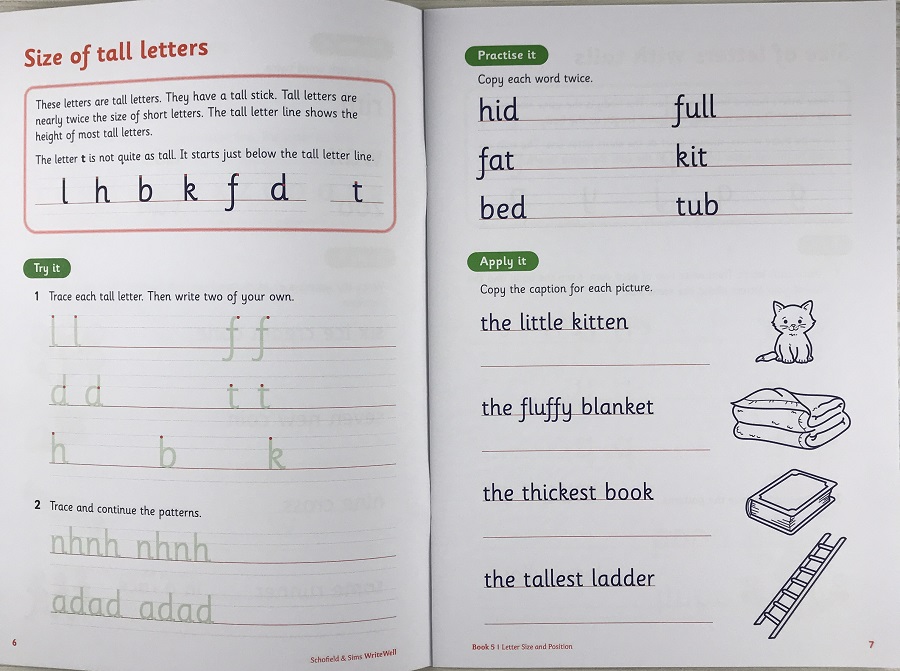 Size of tall letters
These letters are tall letters. They have a tall stick. Tall letters are
nearly twice the size of short letters. The tall letter line shows the
height of most tall letters.
The letter t is not quite as tall. It starts just below the tall letter line.
l h b k f d t
Try it
1 Trace each tall letter. Then write two of your own.
l l f f
d d t t
h b k
2 Trace and continue the patterns.
nhnh nhnh
adad adad
6
Schofield & Sims WriteWell
Practise it
Copy each word twice.
hid full
fat kit
bed tub
Apply it
Copy the caption for each picture.
the little kitten
the fluffy blanket
the thickest book
the tallest ladder
Book 5 | Letter Size and Position
7